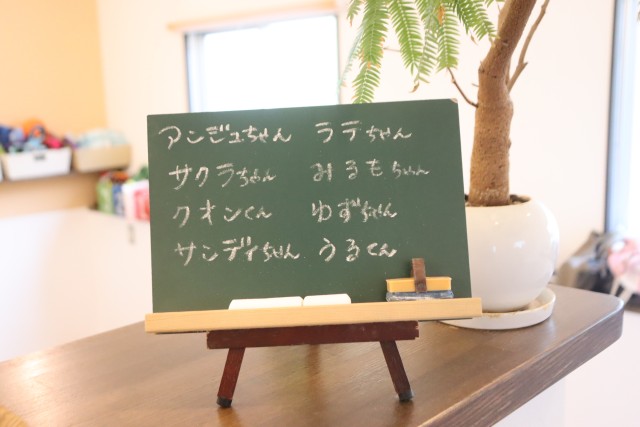 アンジュちゃん ラテちゃん
サクラちゃん みるもちゃん
クオンくん ゆずちゃん
サンディちゃん うるくん